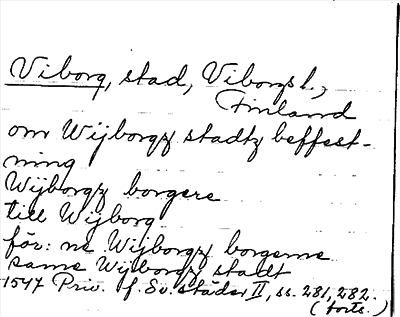 Viborg, stad, Viborgsl.,
Finland
om Wijborgz stadtz beffest-
ning
Wijborgz borgere
till Wijborg
för: ne Wijborgz borgerne
same Wijborgz stadt
1547 Priv. f. Sv. städer II, ss. 281, 282.
(forts.)